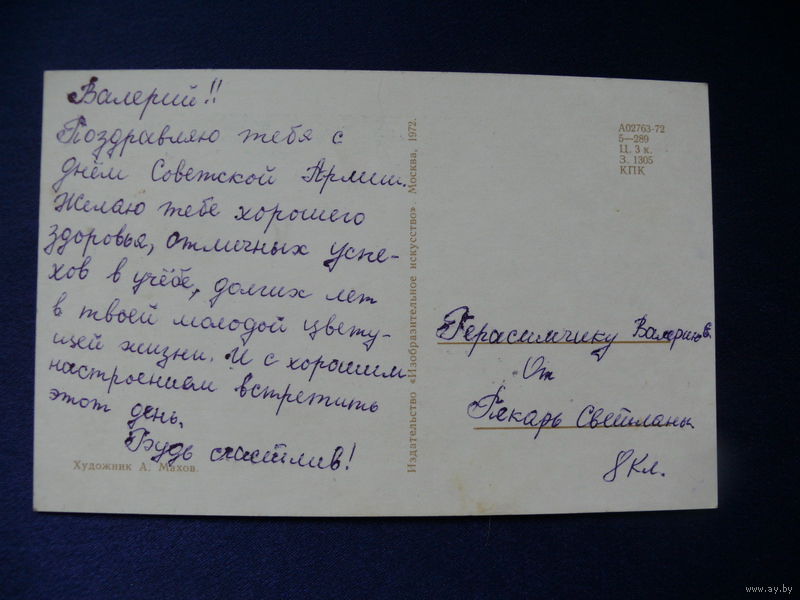 Валерий!!
Поздравляю тебя с
днём Советской Армии.
Желаю тебе хорошего
здоровья, отличных успе-
хов в учёбе, долгих лет
в твоей молодой цвету-
щей жизни. И с хорошим
настроением встретить
этот день.
Будь счастлив!
Художник А. Махов.
Издательство «Изобразительное искусство». Москва, 1972.
А02763-72
5—289
Ц. 3 к.
З. 1305
КПК
Герасимчику Валерию В.
От
Пекарь Светланы
8 Кл.
www.ay.by